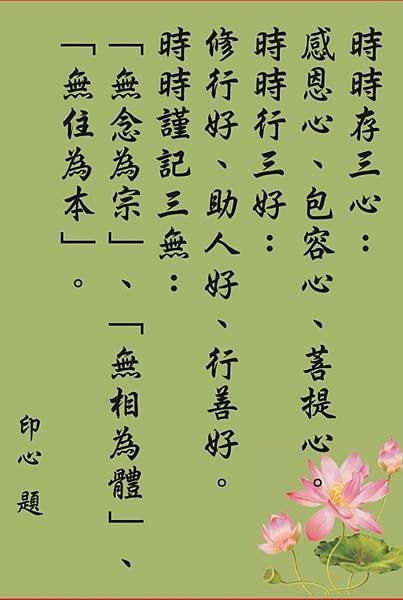 時時存三心：
感恩心、包容心、菩提心。
時時行三好：
修行好、助人好、行善好。
時時謹記三無：
「無念為宗」、「無相為體」、
「無住為本」。
印心 題